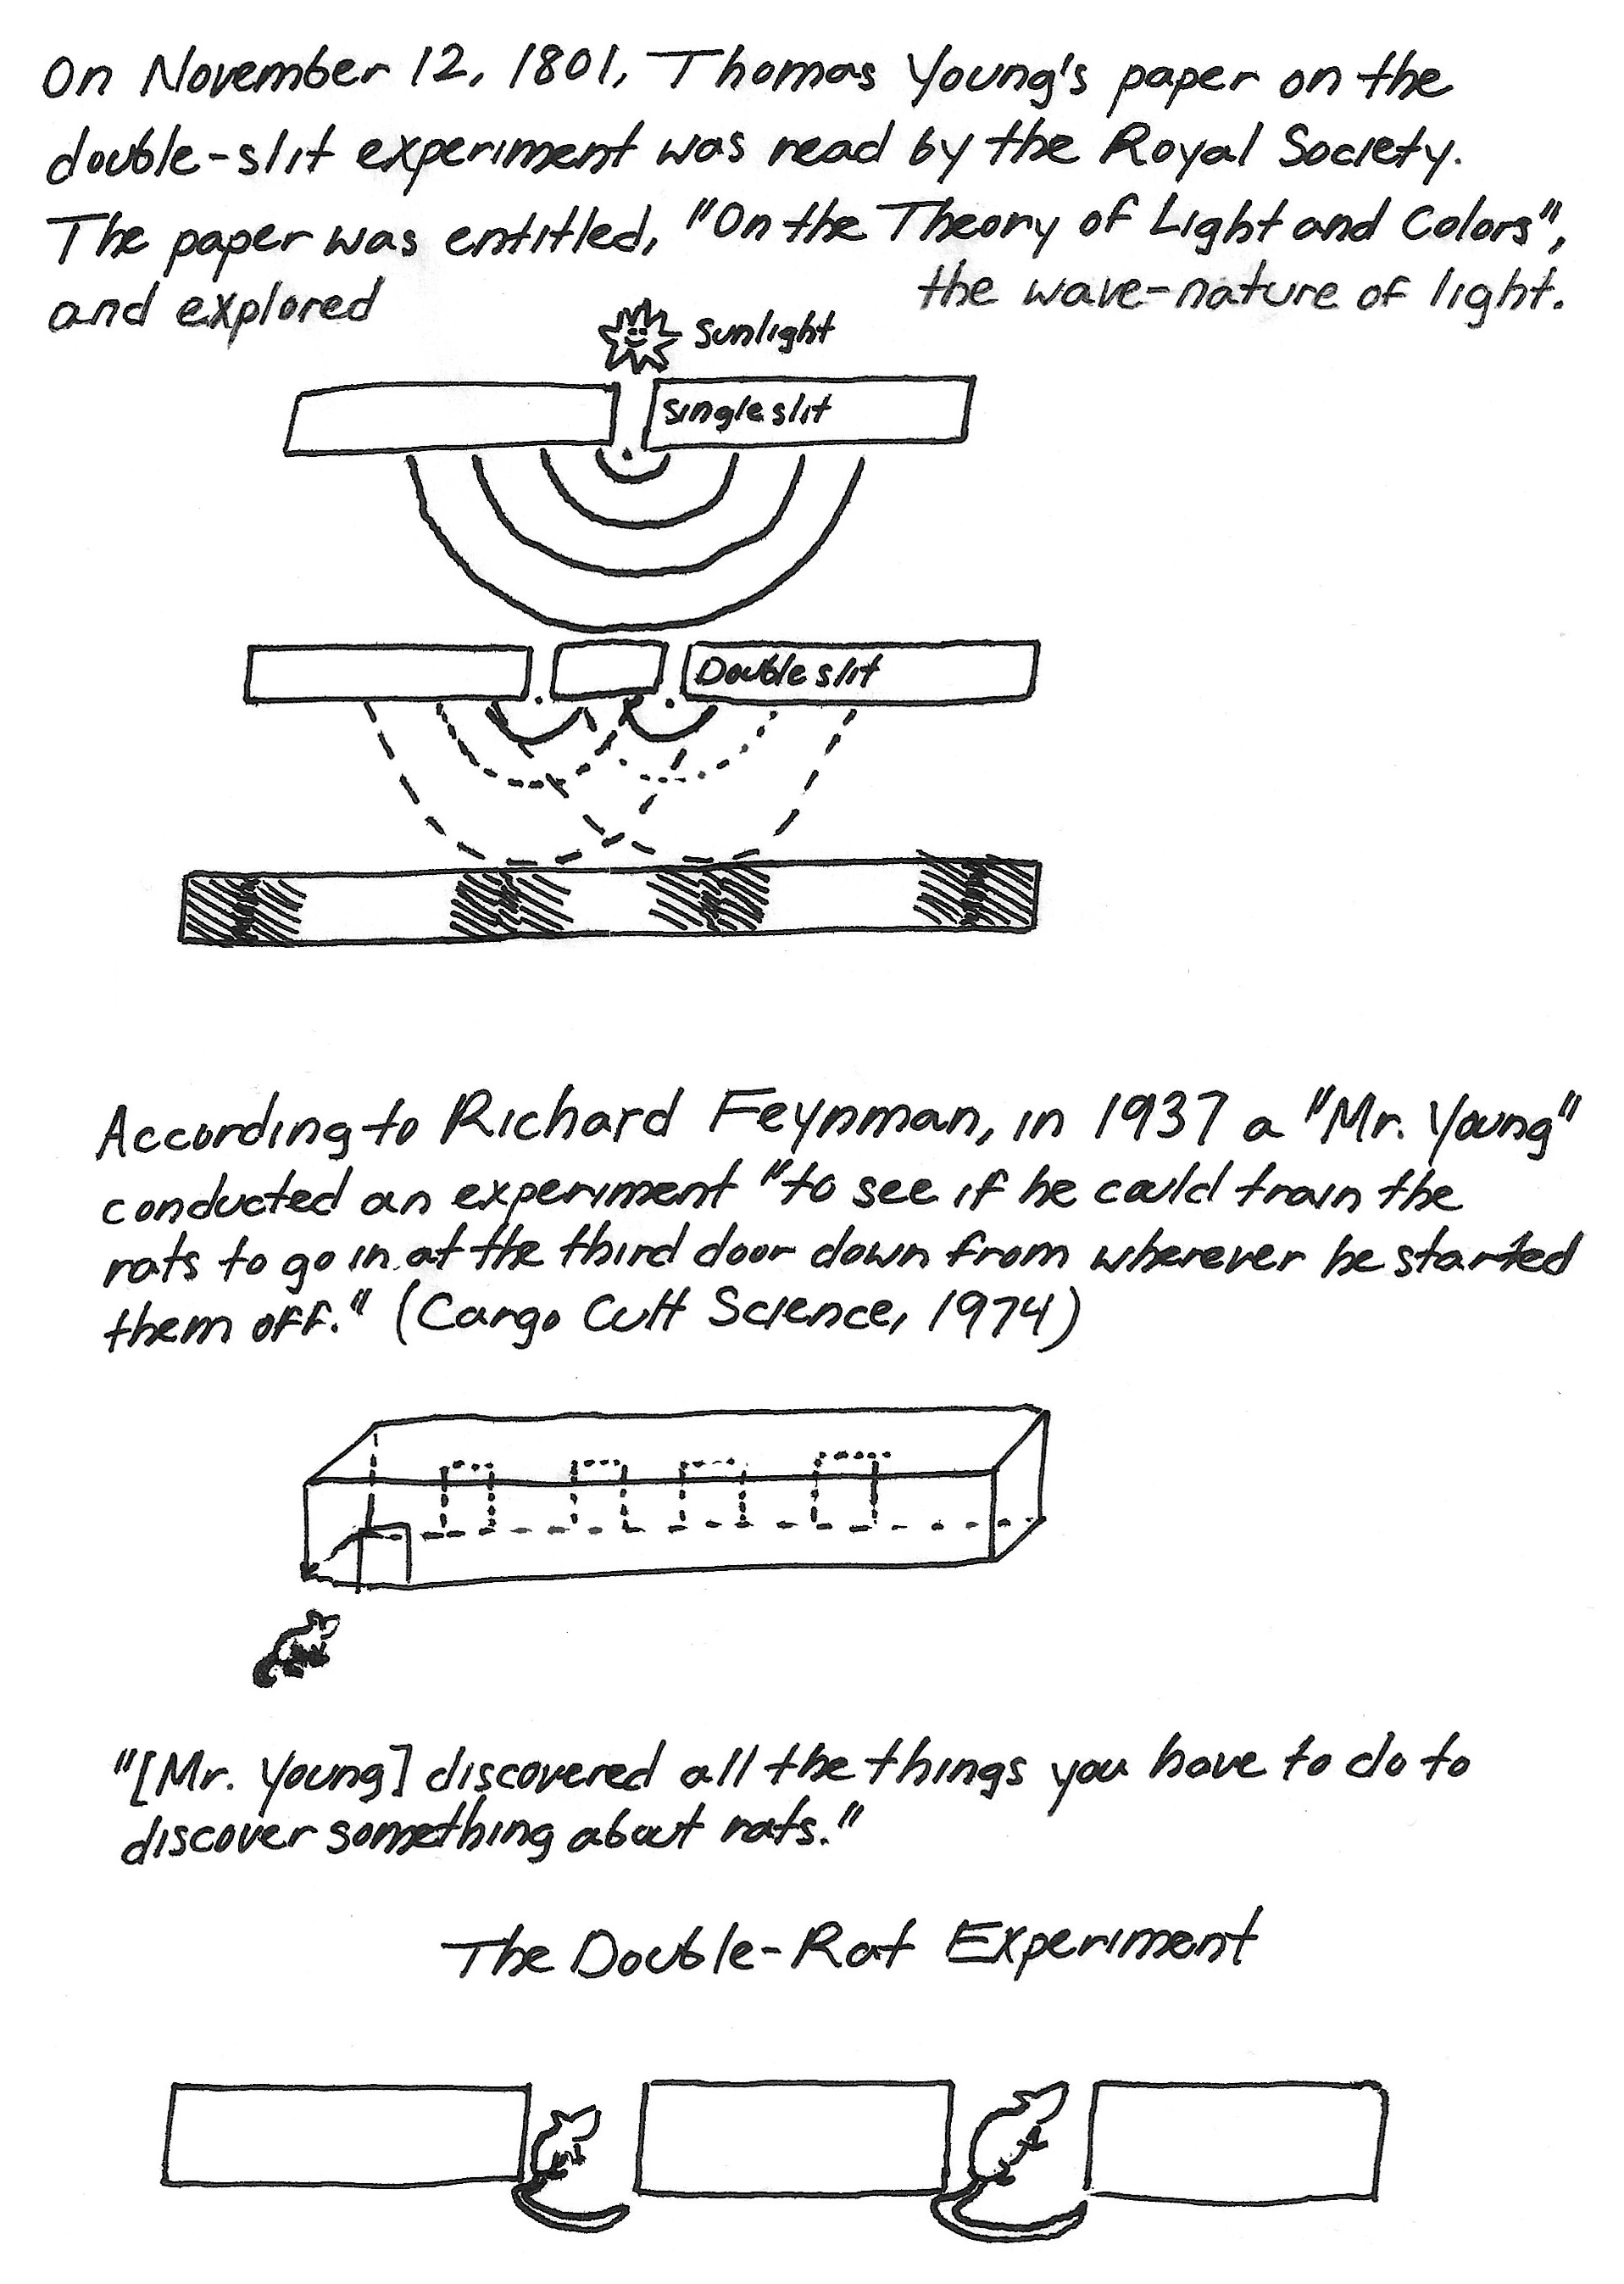 On November 12, 1801, Thomas Young's paper on the
double-slit experiment was read by the Royal Society.
The paper was entitled, "On the Theory of Light and Colors",
and explored the wave-nature of light.
Sunlight
Single slit
Double slit
According to Richard Feynman, in 1937 a "Mr. Young"
conducted an experiment "to see if he could train the
rats to go in at the third door down from wherever he started
them off." (Cargo Cult Science, 1974)
"[Mr. Young] discovered all the things you have to do to
discover something about rats."
The Double-Rat Experiment